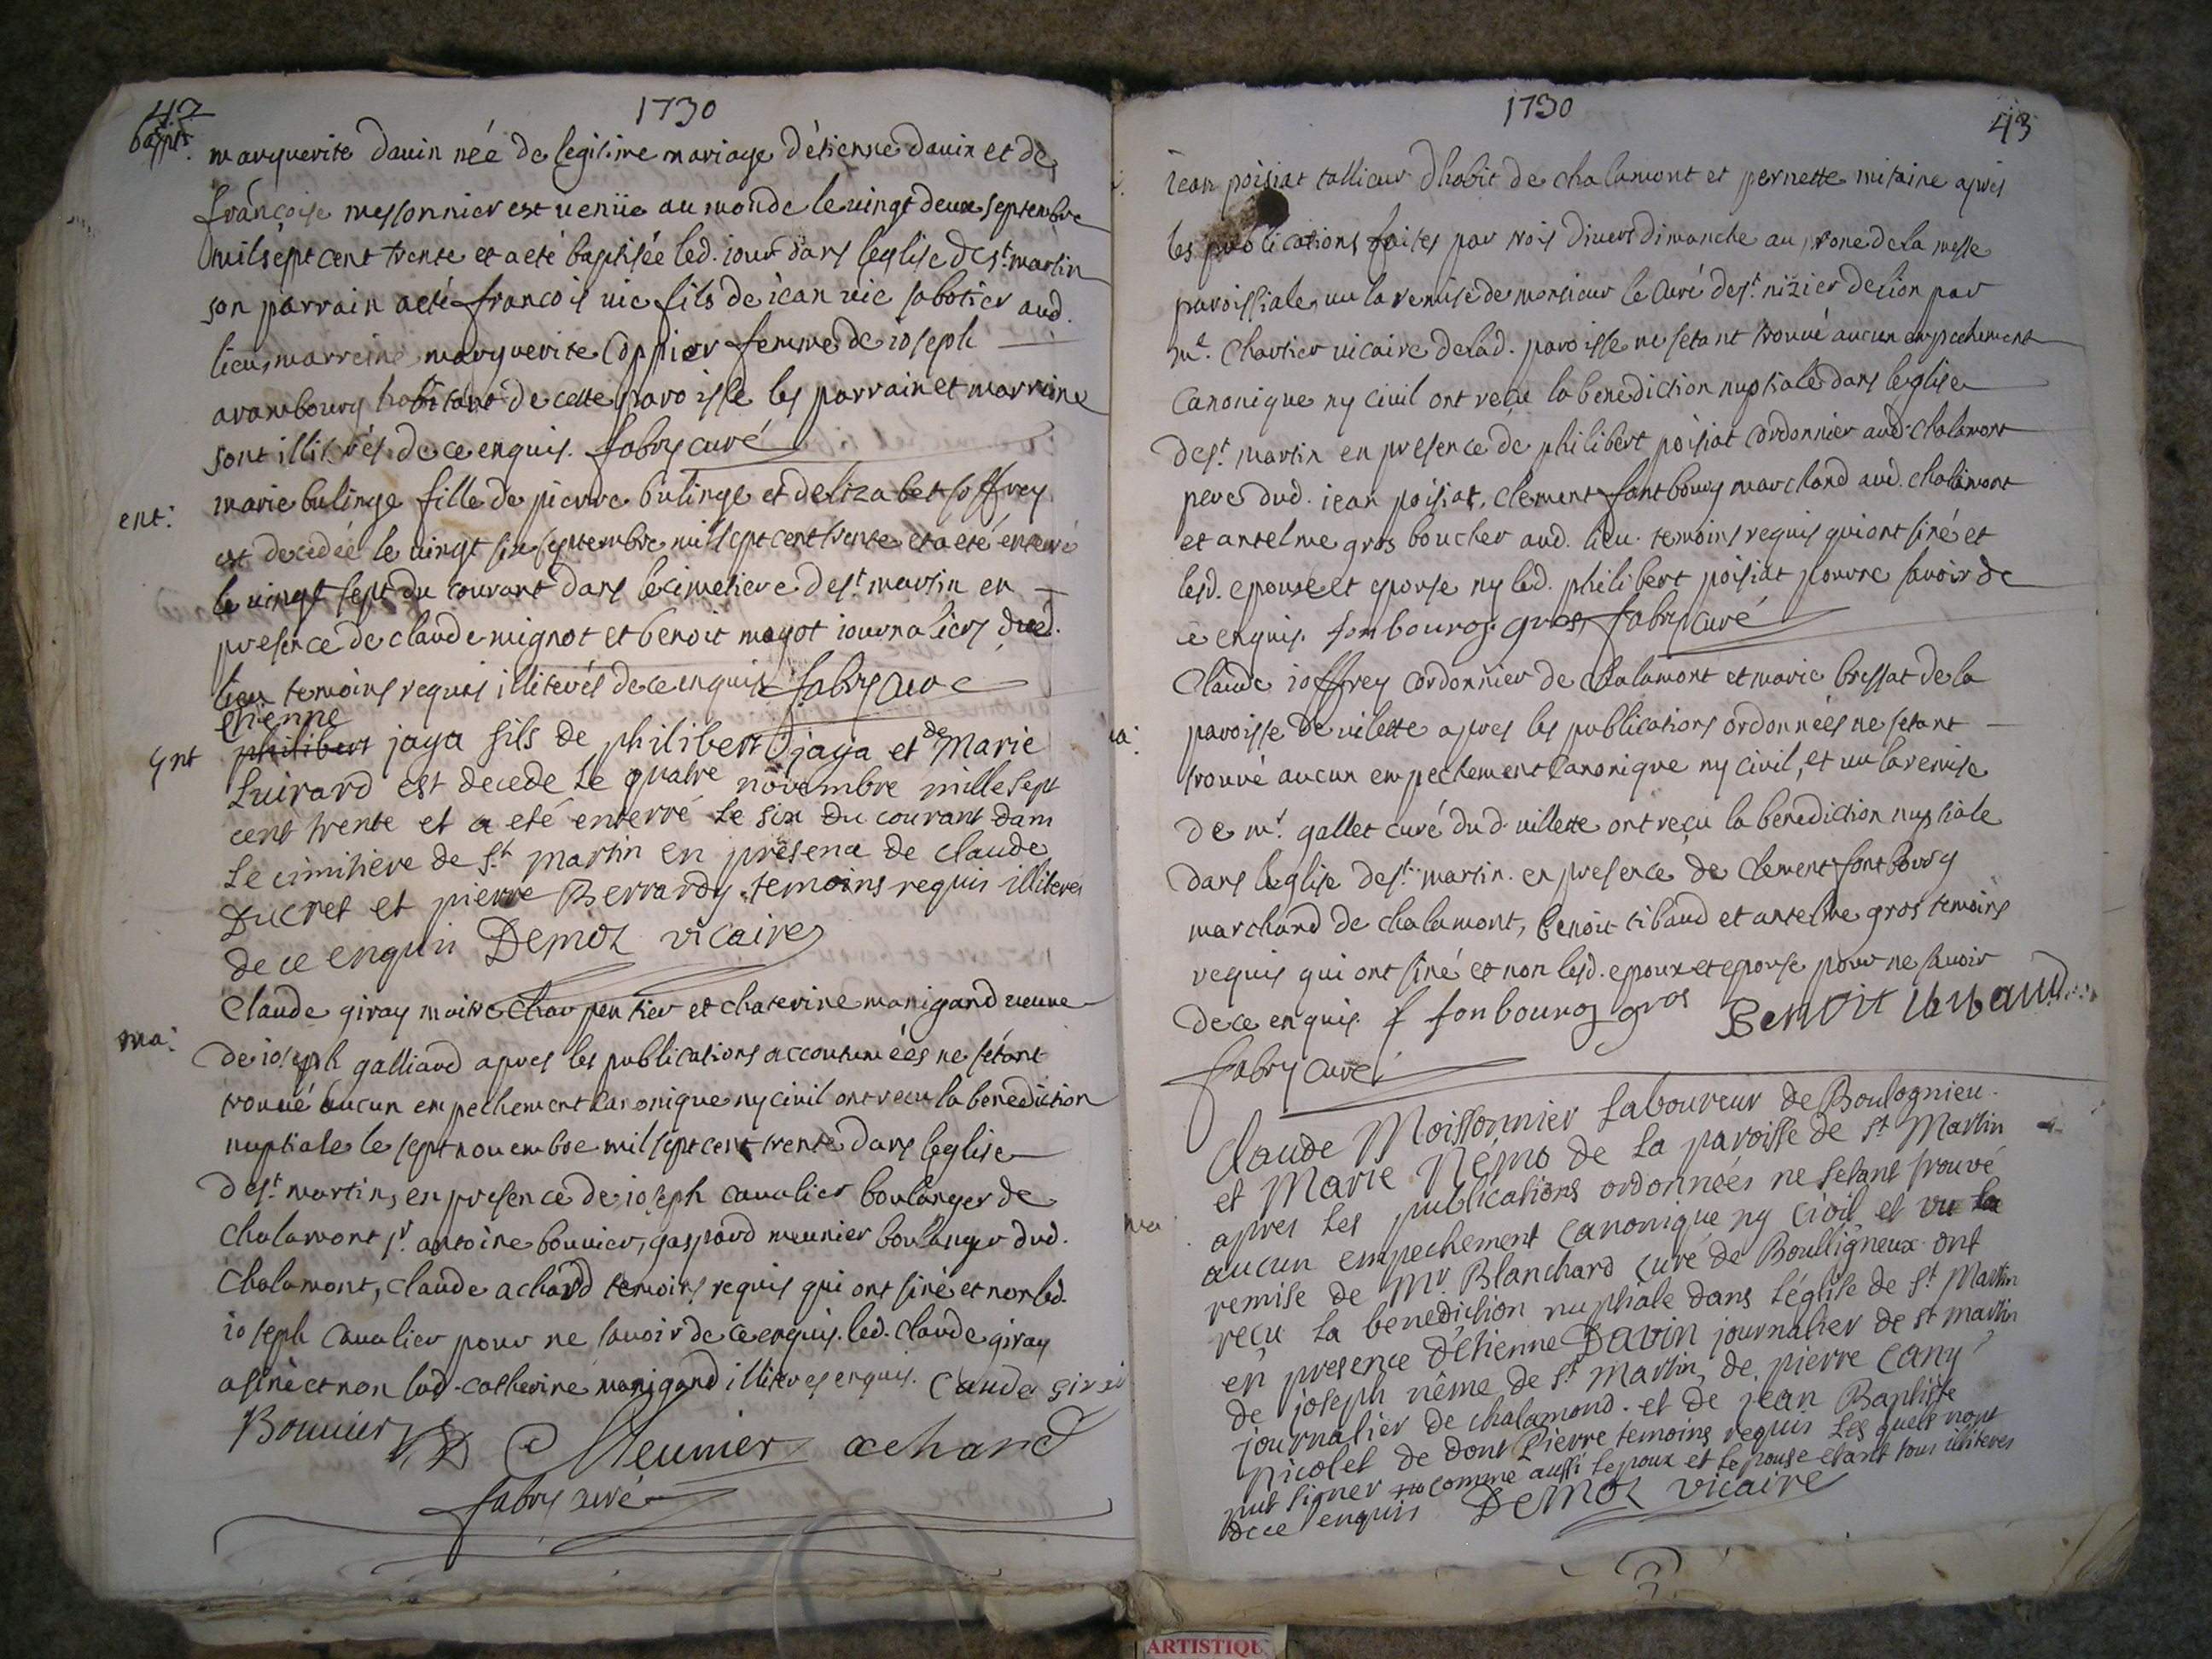 42
1730
bapt.
marguerite davin née de legitime mariage d'étienne davin et de
françoise messonnier est venüe au monde le vingt deux septembre
mil sept cent trente et a eté baptisée led. iour dans leglise de st. martin
son parrain a eté francois vic fils de iean vic sabotier aud.
lieu, marreine marguerite Coppier femme de ioseph
arambourg habitant de cette paroisse les parrain et marreine
sont illiterés de ce enquis. fabry curé
ent:
marie bulinge fille de pierre bulinge et delizabet joffrey
est decedée le vingt six septembre mil sept cent trente et a eté enterré
le vingt sept du courant dans le cimetiere de st. martin en
presence de claude mignot et benoit mayot iournaliers dud.
lieu temoins requis illiterés de ce enquis fabry curé
etienne
Ent
philibert jaya fils de philibert jaya et de Marie
Luirard est decede Le quatre novembre mille sept
cent trente et a eté enterré Le six du courant dans
Le cimitiere de st. martin en présence de claude
Ducret et pierre Berrardy temoins requis illiteres
de ce enquis Demoz vicaire
ma:
Claude giray maitre charpentier et chaterine manigand veuve
de ioseph galliard apres les publications accoutumées ne sétant
trouvé aucun empechement canonique ny civil ont recu la benediction
nuptiale le sept novembre mil sept cent trente dans leglise
de st. martin, en presence de ioseph cavalier boulanger de
chalamont sr. antoine bouvier, gaspard meunier boulanger dud.
Chalamont, claude achard temoins requis qui ont siné et non led.
ioseph cavalier pour ne savoir de ce enquis. led. claude giray
a siné et non lad. catherine manigand illiteres enquis. Claude girai
Bouuier G Meunier achard
fabry curé
1730
43
iean poisiat tallieur dhabit de chalamont et pernette mitaine apres
les publications faites par trois divers dimanche au prone de la messe
paroissiale, vu la remise de monsieur le curé de st. nizier de lion par
mr. Chartier vicaire de lad. paroisse ne setant trouvé aucun empechement
canonique ny civil ont reçu la benediction nuptiale dans leglise
de st. martin en presence de philibert poisiat cordonnier aud. chalamont
pere dud. iean poisiat, clement fontbourg marchand aud. chalamont
et antelme gros boucher aud. lieu temoins requis qui ont siné et
lesd. epouse et epouse ny led. philibert poisiat pour ne savoir de
ce enquis. fonbourg gros fabry curé
ma:
Claude ioffrey cordonnier de chalamont et marie bressat de la
paroisse de vilette apres les publications ordonnées ne setant
trouvé aucun empechement canonique ny civil, et vu la remise
de mr. gallet curé dud. villette ont reçu la benediction nuptiale
dans leglise de st. martin. en presence de clement fontbourg
marchand de chalamont, benoit tibaud et antelme gros temoins
requis qui ont siné et non lesd. epoux et epouse pour ne savoir
de ce enquis. f fonbourg gros Benoit tibaud
fabry curé
ma
Claude Moissonnier Laboureur de Boulognieu
et Marie Nemo de La paroisse de st Martin
apres Les publications ordonnées ne setant trouvé
aucun empechement canonique ny civil et vu la
remise de Mr. Blanchard curé de Boulligneux ont
reçu La benediction nuptiale dans L'église de st. Martin
en presence d'étienne Davin journalier de st martin
de joseph nême de st. Martin, de pierre Cany
journalier de chalamond. et de jean Baptiste
nicolet de dont Pierre temoins requis Les quels nont
put signer comme aussi Lepoux et Lepouse etant tous illiteres
de ce enquis Demoz vicaire
ARTISTIQU